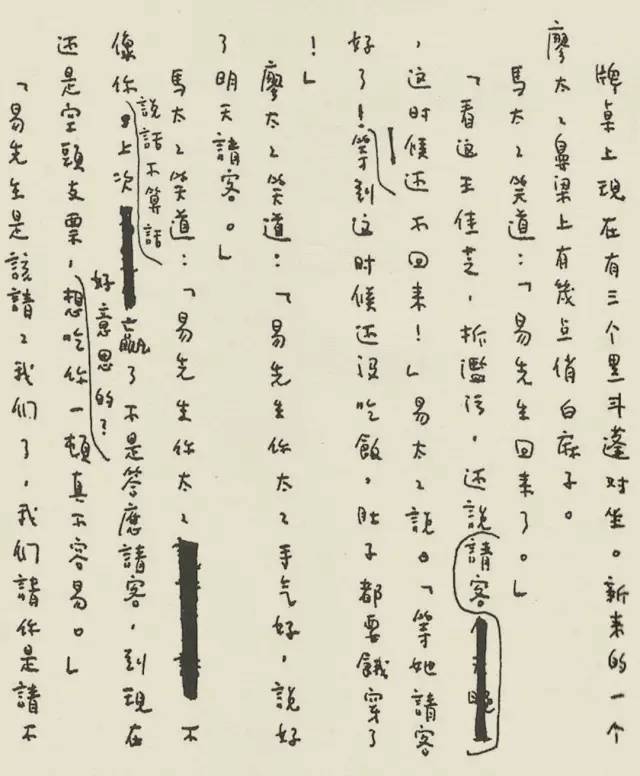 牌桌上現在有三个黑斗蓬对坐。新来的一个
廖太ヽ鼻梁上有幾点俏白麻子。
馬太ヽ笑道：「易先生回来了。」
「看这王佳芝，拆濫污，还說請客
，这时候还不回来！」易太ヽ說。「等她請客
好了！等到这时候还没吃飯，肚子都要餓穿了
！」
廖太ヽ笑道：「易先生你太ヽ手气好，說好
了明天請客。」
馬太ヽ笑道：「易先生你太ヽ不
說話不算話
像你上次贏了不是答應請客，到現在
好意思的？
还是空頭支票，想吃你一頓真不容易。」
「易先生是該請ヽ我们了，我们請你是請不